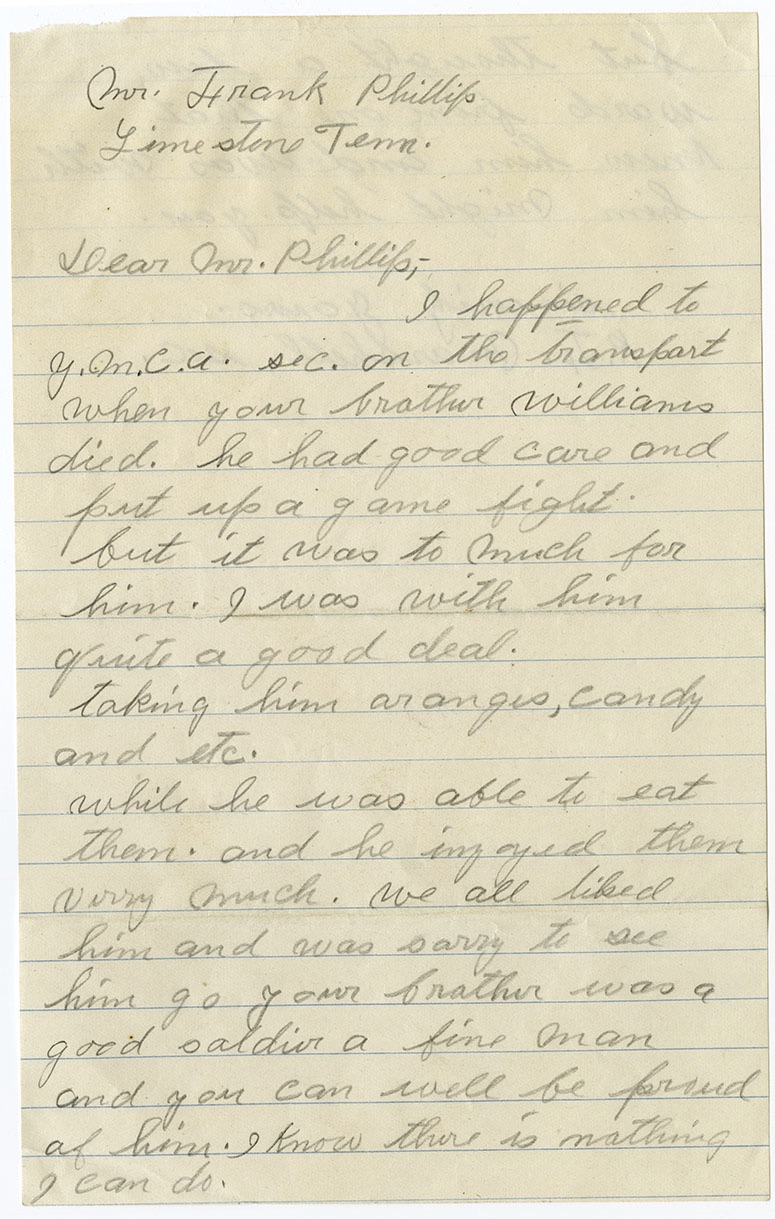 Mr. Frank Phillips
Limestone Tenn.
Dear Mr. Phillips,-
I happened to
Y.M.C.A. sec. on the transport
when your brother williams
died. he had good care and
put up a game fight.
but it was to much for
him. I was with him
quite a good deal.
taking him oranges, candy
and etc.
while he was able to eat
them. and he injoyed them
verry much. we all liked
him and was sorry to see
him go your brother was a
good soldier a fine man
and you can well be proud
of him. I know there is nothing
I can do.